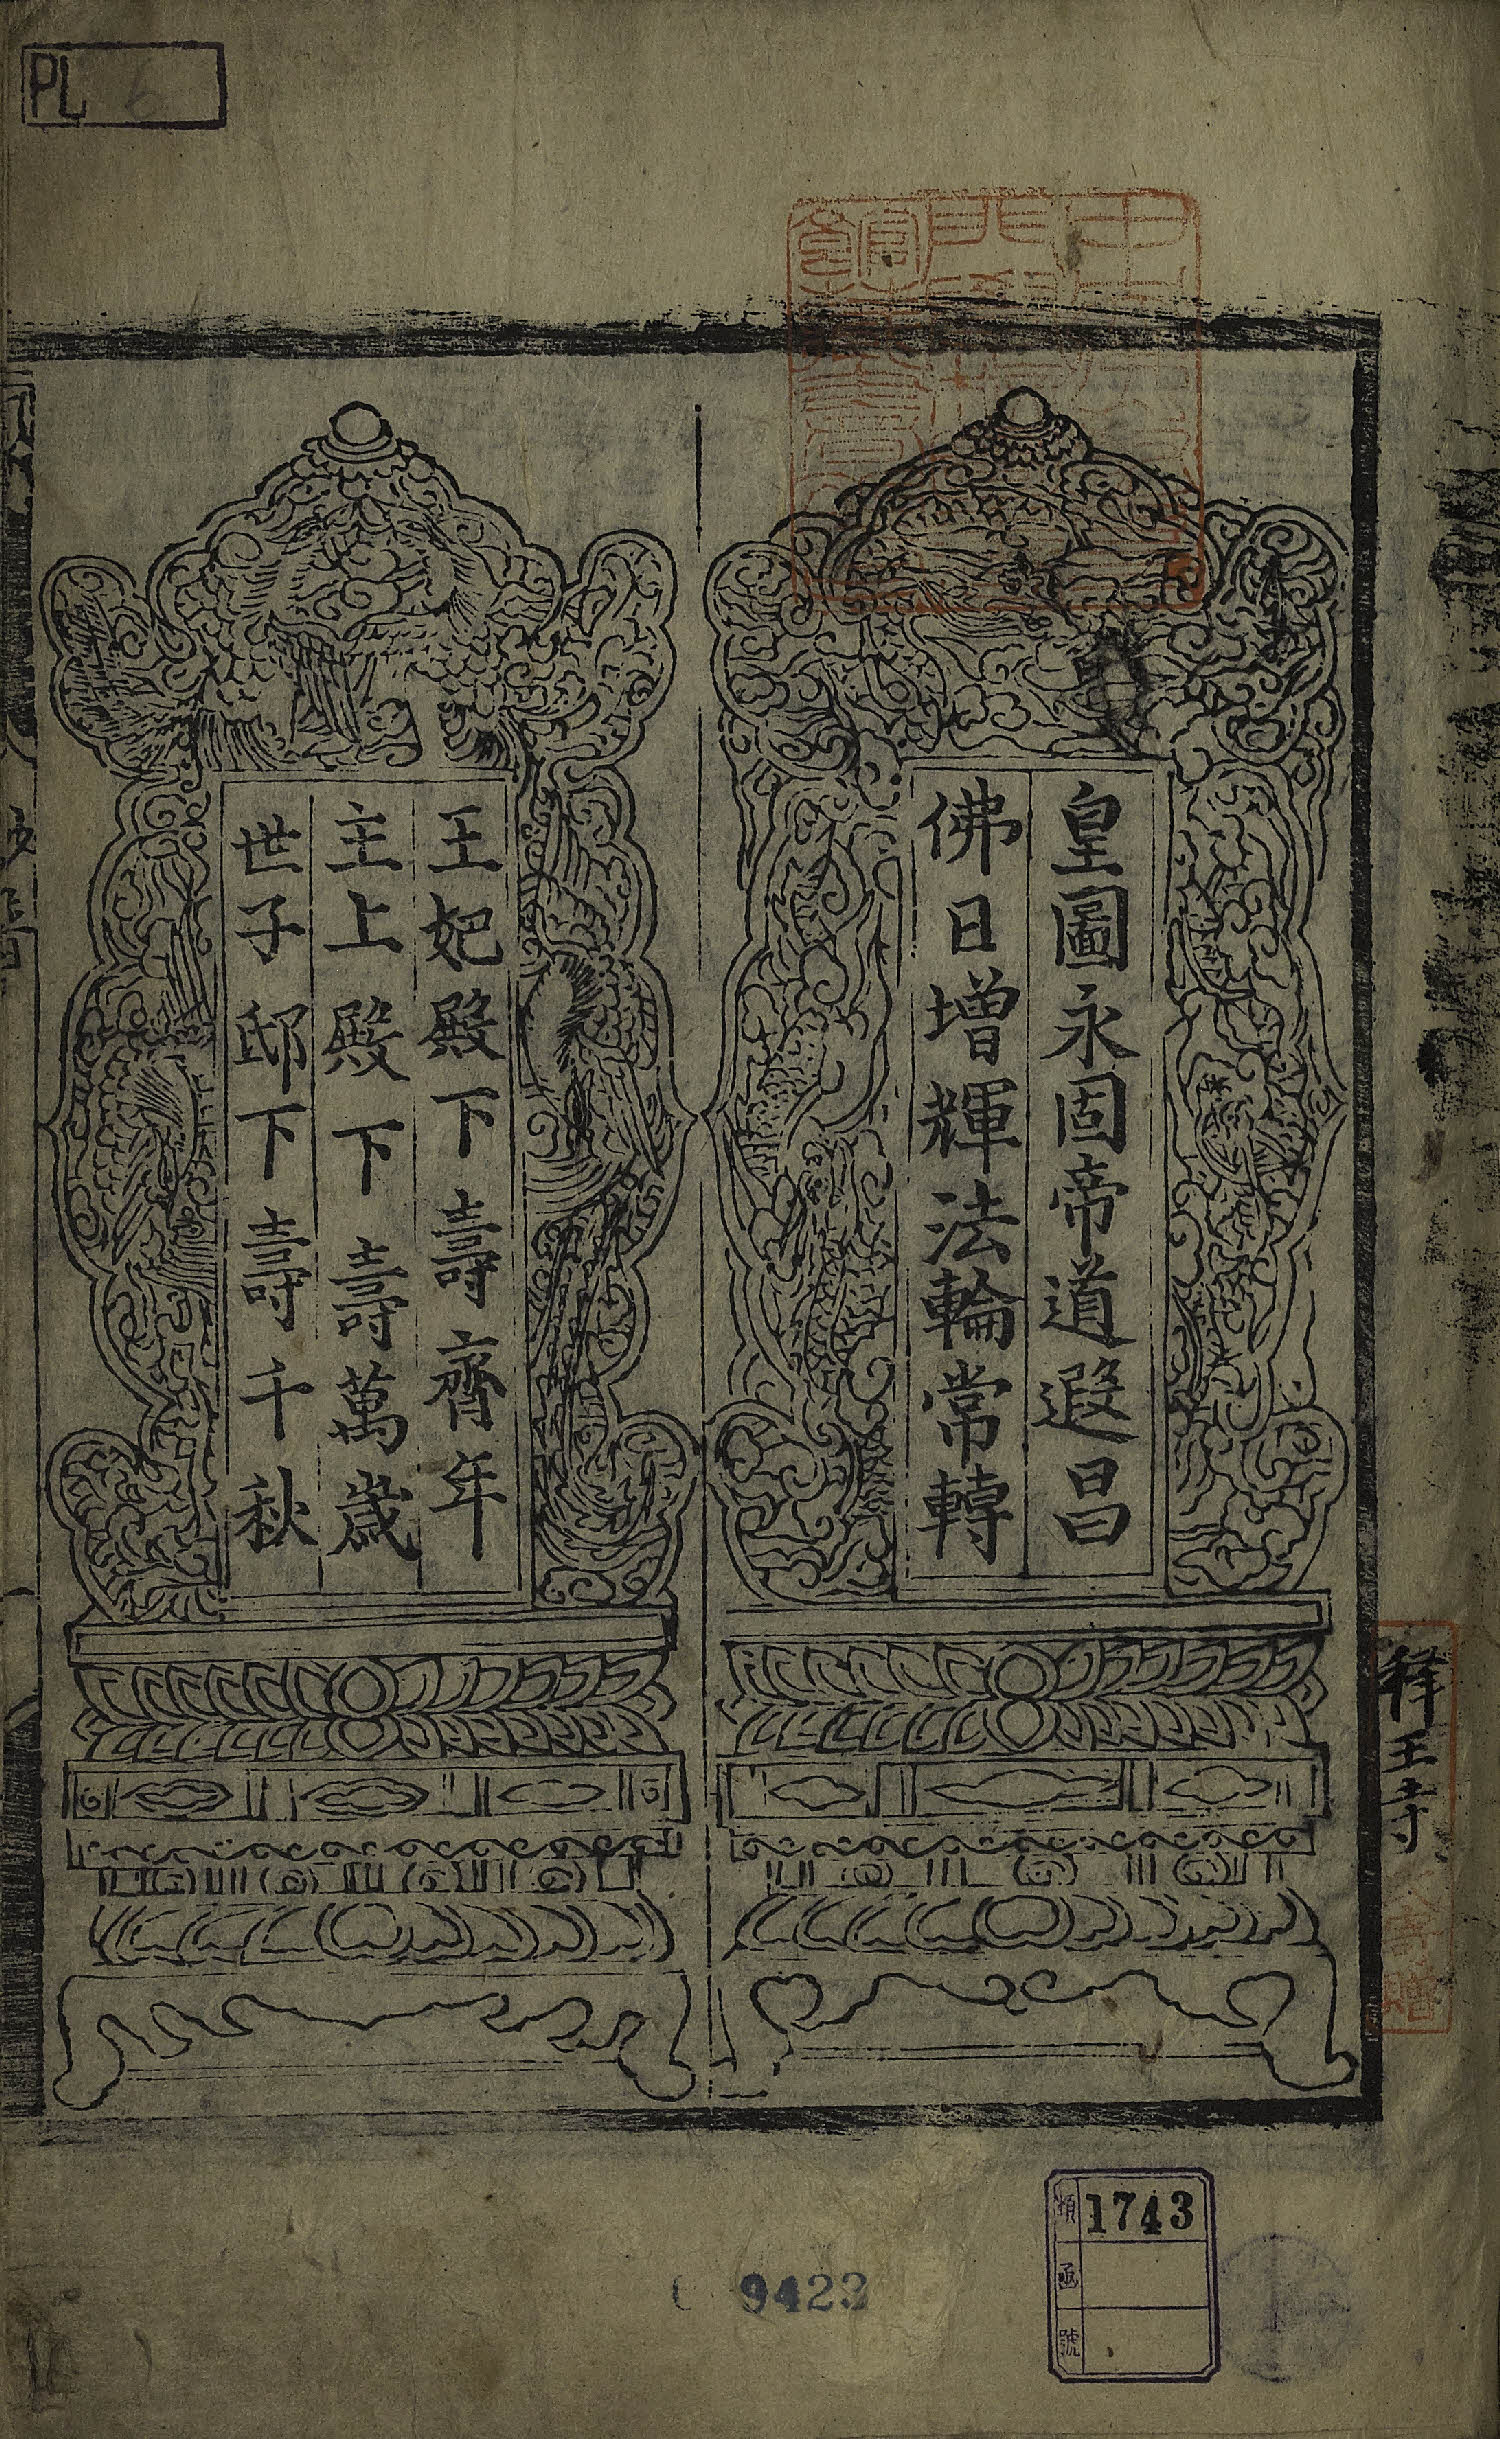 皇圖永固帝道遐昌
佛日增輝法輪常轉
王妃殿下壽齊年
主上殿下壽萬歲
世子邸下壽千秋
釋王寺
PL
1743
函
號
9423